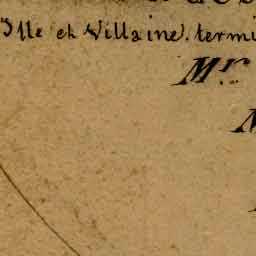 Ille et Villaine. termi
Mr.